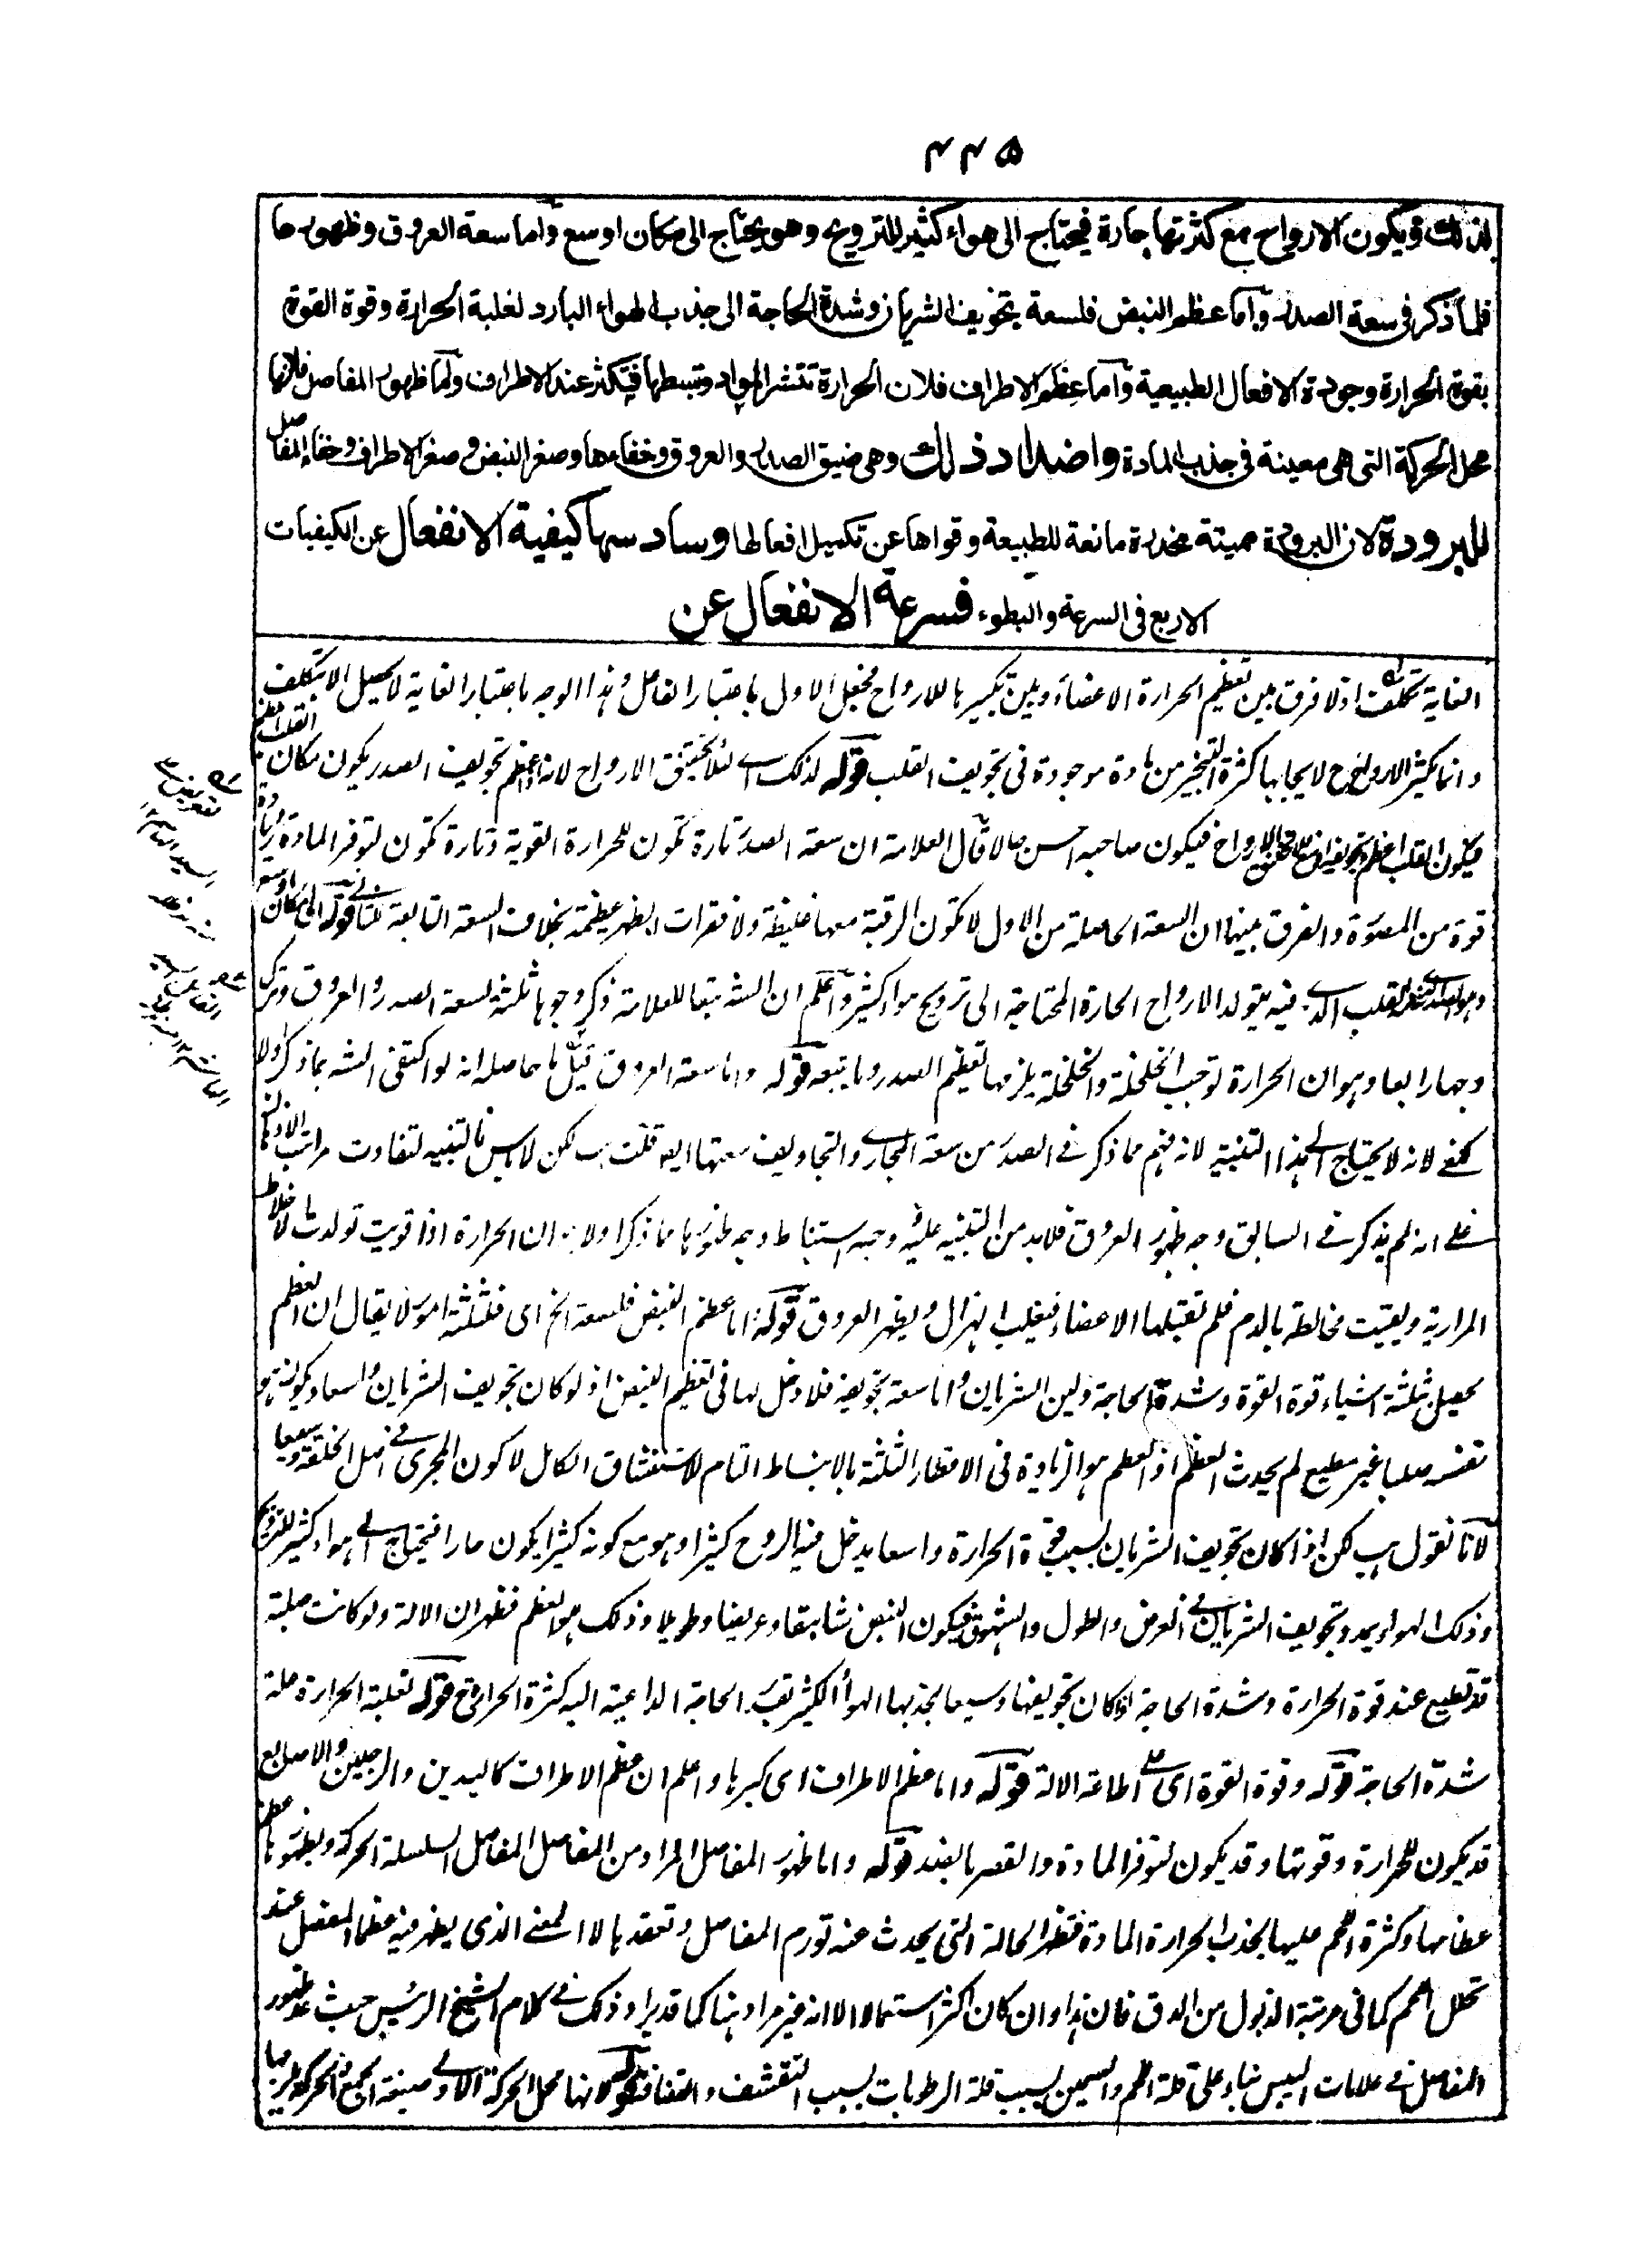 ۴۴۵
لذلك ويكون الارواح مع كثرتها حارة فيحتاج الى هواء كثير للترويح وهو يحتاج الى مكان اوسع واما سعة العروق وظهورها
فلما ذكر فى سعة الصدر واما عظم النبض فلسعة تجويف الشريان وشدة الحاجة الى جذب الهواء البارد لغلبة الحرارة وقوة القوة
بقوة الحرارة وجودة الافعال الطبيعية واما عظم الاطراف فلان الحرارة تنشر المواد وتبسطها فيتكثر عند الاطراف واما ظهور المفاصل فلانها
محل الحركة التى هى معينة فى جذب المادة واضداد ذلك وهى ضيق الصدر والعروق وخفاءها وصغر النبض وصغر الاطراف وخفاء المفاصل
للبرودة لان البرودة مميتة مخدرة مانعة للطبيعة وقواها عن تكميل افعالها وسادسها كيفية الانفعال عن الكيفيات
الاربع فى السرعة والبطوء فسرعة الانفعال عن
الغاية تكلف اذ لا فرق بين تعظيم الحرارة الاعضاء وبين تكبيرها للارواح فجعل الاول باعتبار الفاعل وهذا الوجه باعتبار الغاية لا يحصل الا بتكلف
وانما يكثر الارواح لايجابها كثرة التبخير من مادة موجودة فى تجويف القلب قوله لذلك اى لئلا يختنق الارواح لانه اذا عظم تجويف الصدر يكون مكان القلب اعظم
فيكون القلب اعظم وتجويفه اوسع فلا يختنق الارواح فيكون صاحبه احسن حالا قال العلامة ان سعة الصدر تارة تكون للحرارة القوية وتارة تكون لتوفر المادة وزيادة
قوة من المصورة والفرق بينهما ان السعة الحاصلة من الاول لا تكون الرقبة معها غليظة ولا فقرات الظهر عظيمة بخلاف السعة التابعة للثانى قوله الى مكان اوسع
وهو القلب الذى فيه يتولد الارواح الحارة المحتاجة الى ترويح هواء كثير واعلم ان الشه تبعا للعلامة ذكر وجوها ثلثة لسعة الصدر والعروق وترك
وجها رابعا وهو ان الحرارة توجب الخلخلة والخلخلة يلزمها تعظيم الصدر وما يتبعه قوله واما سعة العروق قيل ما حاصله انه لو اكتفى الشه بما ذكر اولا
لكفى لانه لا يحتاج الى هذا التنبيه لانه فهم مما ذكر فى الصدر من سعة المجارى والتجاويف سعتها ايضا قلت هب لكن لا باس بالتنبيه لتفاوت مراتب الاذهان
على انه لم يذكر فى السابق وجه ظهور العروق فلابد من التنبيه عليه وجه استنباط وجه ظهورها مما ذكر اولا ان الحرارة اذا قويت تولدت الاخلاط
المرارية وبقيت مخالطة بالدم فلم تقبلها الاعضاء فيغلب الهزال ويظهر العروق قوله اما عظم النبض فلسعة الخ اى فلثلثة امور لا يقال ان العظم
يحصل بثلثة اشياء قوة القوة وشدة الحاجة ولين الشريان واما سعة تجويفه فلا دخل لها فى تعظيم النبض اذ لو كان تجويف الشريان واسعا ويكون هو
نفسه صلبا غير مطيع لم يحدث العظم اذ العظم هو الزيادة فى الاقطار الثلثة بالانبساط التام للاستنشاق الكامل لا كون المجرى فى اصل الخلقة وسيعا
لانا نقول هب لكن اذا كان تجويف الشريان بسبب قوة الحرارة واسعا يدخل فيه الروح كثيرا وهو مع كونه كثيرا يكون حارا فيحتاج الى هواء كثير للترويح
وذلك الهواء يمدد تجويف الشريان فى العرض والطول والشهوق فيكون النبض شاهقا وعريضا وطويلا وذلك هو العظم فظهر ان الالة ولو كانت صلبة
قد تطيع عند قوة الحرارة وشدة الحاجة اذا كان تجويفها وسيعا يجذبها الهواء الكثير بقدر الحاجة الداعية اليه كثرة الحرارة قوله لغلبة الحرارة علة
شدة الحاجة قوله وقوة القوة اى على اطاعة الالة قوله واما عظم الاطراف اى كبرها واعلم ان عظم الاطراف كاليدين والرجلين والاصابع
قد يكون للحرارة وقوتها وقد يكون لتوفر المادة والقصر بالضد قوله واما ظهور المفاصل المراد من المفاصل المفاصل السلسلة الحركة وبظهورها عظم
عظامها وكثرة اللحم عليها بجذب الحرارة المادة فتظهر الحالة التى يحدث عنه تورم المفاصل وتعقدها لا المعنى الذى يظهر فيه عظام المفصل عند
تحلل اللحم كما فى مرتبة الذبول من الدق فان هذا وان كان اكثر استعمالا الا انه غير مراد ههنا كما قد يراد وذلك فى كلام الشيخ الرئيس حيث عد ظهور
المفاصل فى علامات اليبس بناء على قلة اللحم والسمين بسبب قلة الرطوبات بسبب التقشف والقضافة قوله لانها محل الحركة الاولى صيغة الجمع